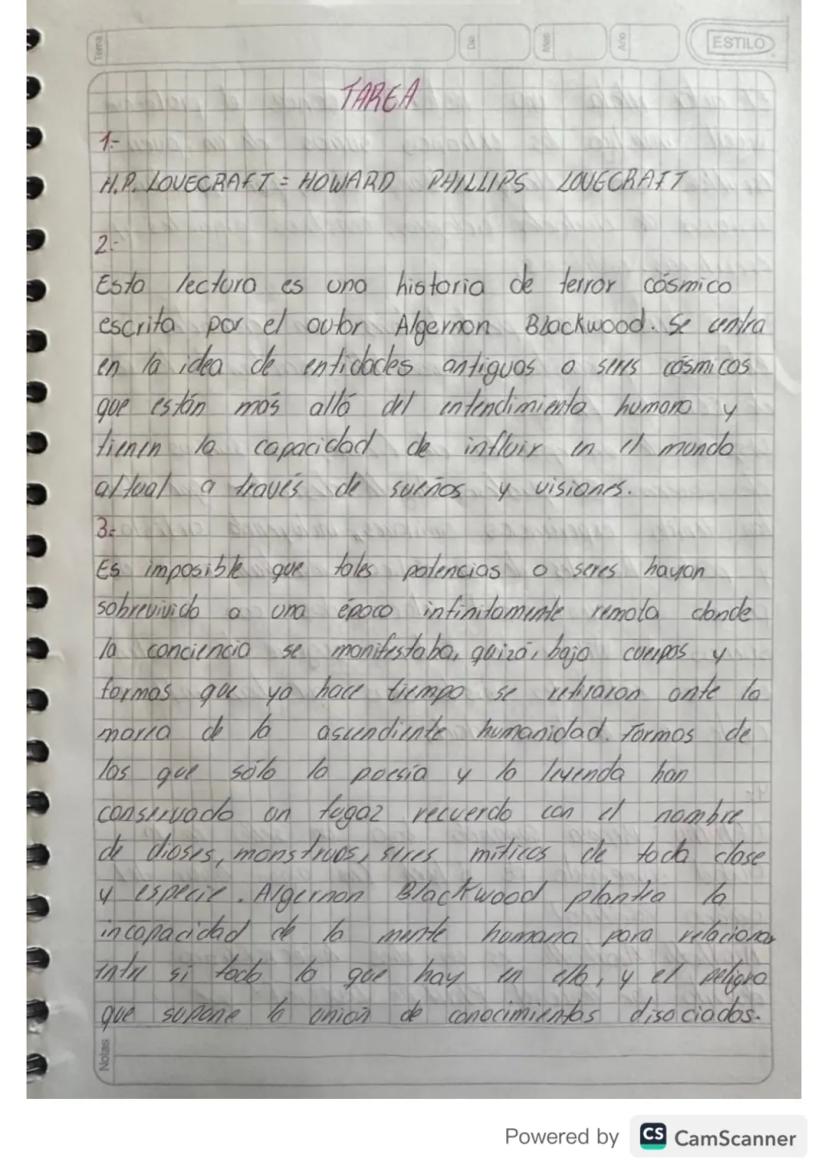 Tema
Dia
Mes
Año
ESTILO
TAREA
1-
H.P. LOVECRAFT = HOWARD PHILLIPS LOVECRAFT
2-
Esta lectura es una historia de terror cósmico
escrita por el autor Algernon Blackwood. Se centra
en la idea de entidades antiguas o seres cósmicos
que están más allá del entendimiento humano y
tienen la capacidad de influir en el mundo
actual a través de sueños y visiones.
3-
Es imposible que tales potencias o seres hayan
sobrevivido a una época infinitamente remota donde
la conciencia se manifestaba, quizá, bajo cuerpos y
formas que ya hace tiempo se retiraron ante la
marea de la ascendiente humanidad. Formas de
las que sólo la poesía y la leyenda han
conservado un fugaz recuerdo con el nombre
de dioses, monstruos, seres míticos de toda clase
y especie. Algernon Blackwood plantea la
incapacidad de la mente humana para relacionar
entre si todo lo que hay en ella, y el peligro
que supone la unión de conocimientos disociados.
Notas
Powered by CS CamScanner